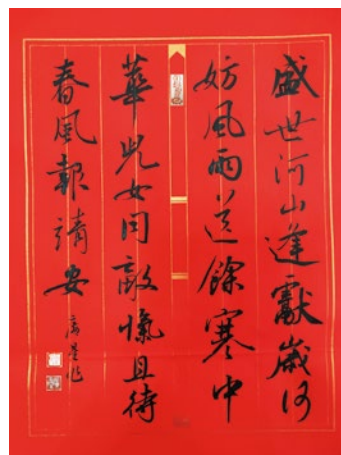 盛世河山逢獻歲何
妨風雨送餘寒中
華兒女同敵愾且待
春風報靖安